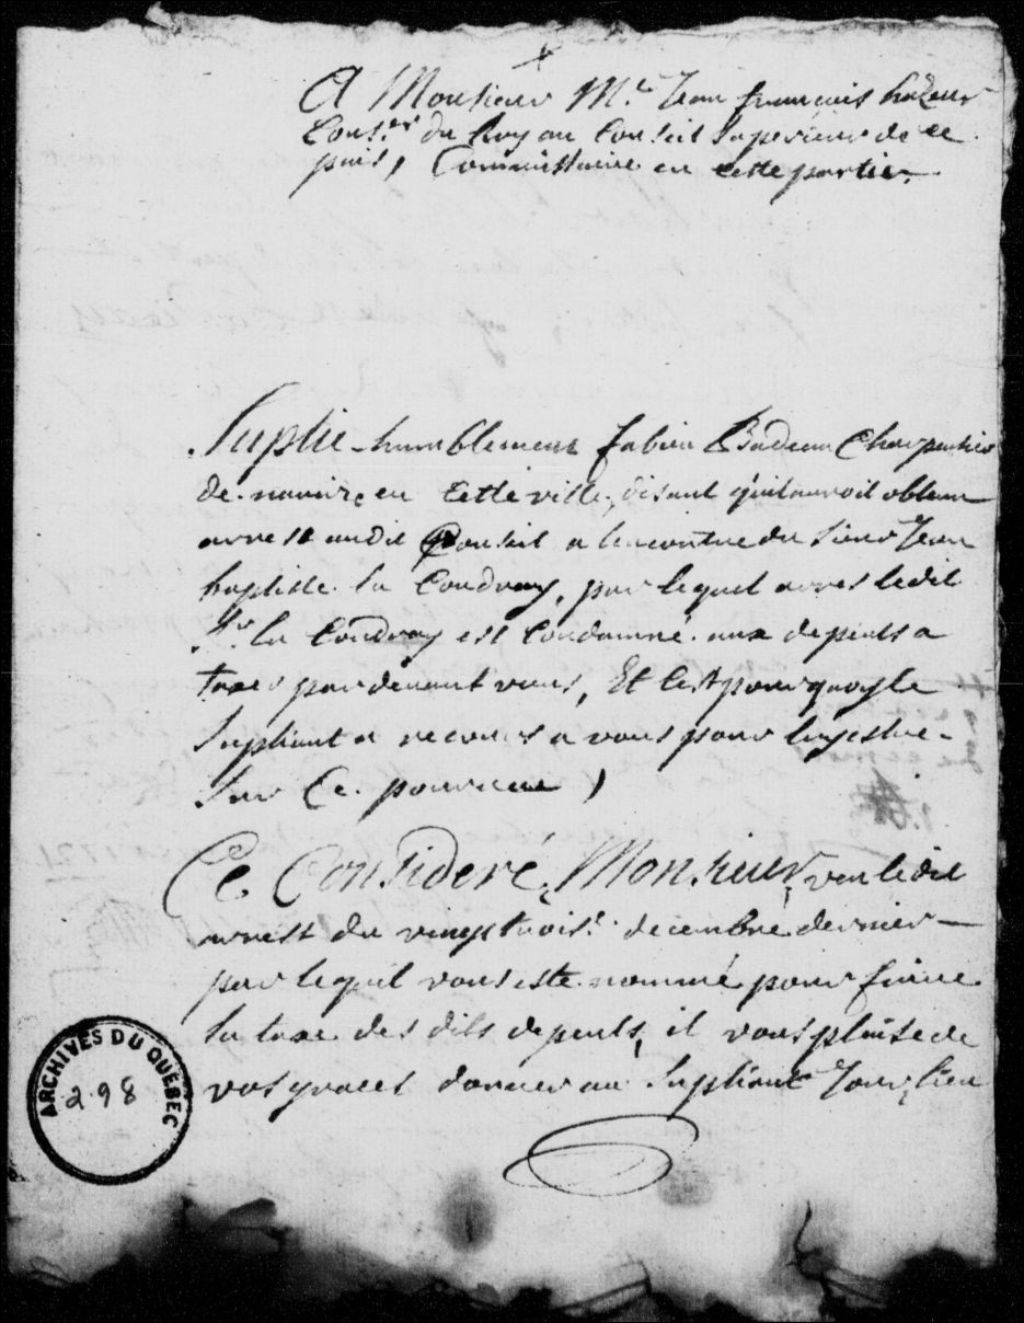 A Monsieur Mr. Jean francois hazeur
Conser. du Roy au Conseil Superieur de ce
païs, Commissaire en cette partie.
Suplie humblement fabien Badeau Charpentier
de navire en Cette ville, disant qu'il auroit obtenu
arrest audit Conseil a lencontre du Sieur Jean
baptiste la Coudray, par lequel arrest ledit
Sr. la Coudray est Condamné aux depents a
taxer pardevant vous, Et C'est pourquoy le
Supliant a recours a vous pour luy estre
Sur Ce pourveue
Ce Consideré, Monsieur, veu ledit
arrest du vingt trois.e decembre dernier
par lequel vous este nommé pour faire
la taxe des dits depents, il vous plaise de
vos graces donner au Supliant Jour, lieu
ARCHIVES DU QUÉBEC
298